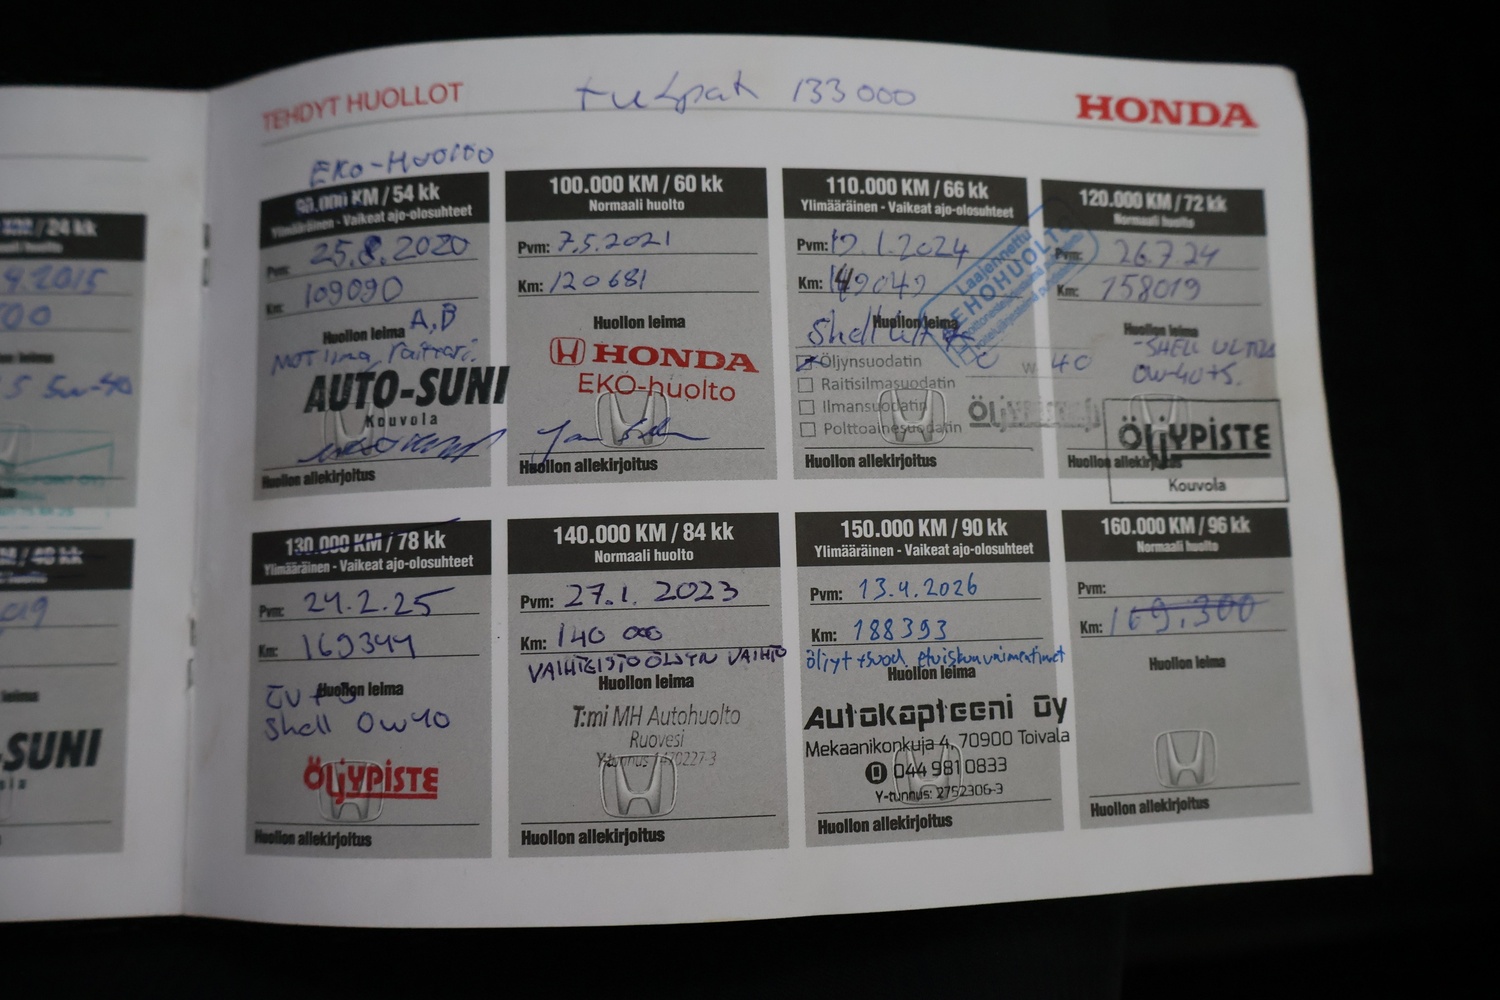 TEHDYT HUOLLOT
tulpat 133000
HONDA
/24 kk
9.2015
00
5 5w-40
48 kk
-SUNI
EKO-HUOLTO
90.000 KM / 54 kk
Ylimääräinen - Vaikeat ajo-olosuhteet
Pvm: 25.8.2020
Km: 109090
Huollon leima A,B
AUTO-SUNI
Kouvola
Huollon allekirjoitus
100.000 KM / 60 kk
Normaali huolto
Pvm: 7.5.2021
Km: 120681
Huollon leima
HONDA
EKO-huolto
Huollon allekirjoitus
110.000 KM / 66 kk
Ylimääräinen - Vaikeat ajo-olosuhteet
Pvm: 19.1.2024
Km: 149049
Huollon leima
Shell
Laajennettu
TEHOHUOLTO
Öljynsuodatin
W 40
Raitisilmasuodatin
Ilmansuodatin
Polttoainesuodatin
ÖLJYPISTE
Huollon allekirjoitus
120.000 KM / 72 kk
Normaali huolto
Pvm: 26.7.24
Km: 158019
Huollon leima
-SHELL ULTRA
0W-40+S.
ÖLJYPISTE
Kouvola
Huollon allekirjoitus
130.000 KM / 78 kk
Ylimääräinen - Vaikeat ajo-olosuhteet
Pvm: 24.2.25
Km: 169344
Huollon leima
ÖV+S
Shell 0w40
ÖLJYPISTE
Huollon allekirjoitus
140.000 KM / 84 kk
Normaali huolto
Pvm: 27.1.2023
Km: 140 000
VAIHTEISTOÖLJYN VAIHTO
Huollon leima
T:mi MH Autohuolto
Ruovesi
Huollon allekirjoitus
150.000 KM / 90 kk
Ylimääräinen - Vaikeat ajo-olosuhteet
Pvm: 13.4.2026
Km: 188393
öljyt+suod. etuiskunvaimentimet
Huollon leima
Autokapteeni Oy
Mekaanikonkuja 4, 70900 Toivala
044 981 0833
Y-tunnus: 2752306-3
Huollon allekirjoitus
160.000 KM / 96 kk
Normaali huolto
Pvm:
Km: 169.300
Huollon leima
Huollon allekirjoitus